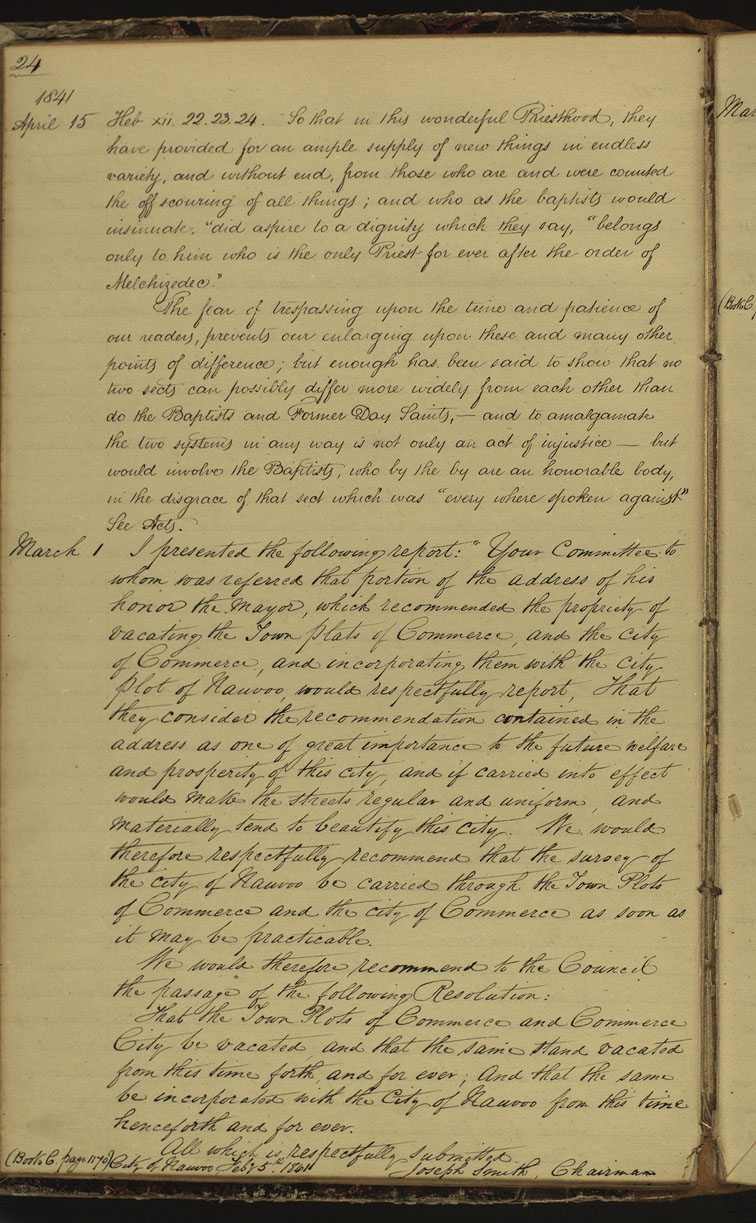 24
1841
April 15 Heb xii. 22. 23. 24. So that in this wonderful Priesthood, they
have provided for an ample supply of new things in endless
variety, and without end, from those who are and were counted
the off scouring of all things; and who as the baptists would
insinuate. "did aspire to a dignity which they say, "belongs
only to him who is the only Priest for ever after the order of
Melchizedec."
The fear of trespassing upon the time and patience of
our readers, prevents our enlarging upon these and many other
points of difference; but enough has been said to show that no
two sects can possibly differ more widely from each other than
do the Baptists and Former Day Saints, — and to amalgamate
the two systems in any way is not only an act of injustice — but
would involve the Baptists, who by the by are an honorable body,
in the disgrace of that sect which was "every where spoken against"
See Acts.
March 1 I presented the following report: "Your Committee to
whom was referred that portion of the address of his
honor the Mayor, which recommended the propriety of
vacating the Town plats of Commerce, and the city
of Commerce, and incorporating them with the city
plot of Nauvoo, would respectfully report, That
they consider the recommendation contained in the
address as one of great importance to the future welfare
and prosperity of this city, and if carried into effect
would make the streets regular and uniform, and
materially tend to beautify this city. We would
therefore respectfully recommend that the survey of
the city of Nauvoo be carried through the Town Plots
of Commerce and the city of Commerce as soon as
it may be practicable.
We would therefore recommend to the Council
the passage of the following Resolution:
That the Town Plots of Commerce and Commerce
City be vacated, and that the same stand vacated
from this time forth, and for ever; And that the same
be incorporated with the City of Nauvoo from this time
henceforth and for ever.
All which is respectfully submitted
(Book C. page 1170) City of Nauvoo Feby 5th 1841 Joseph Smith, Chairman
Mar
(Book C,